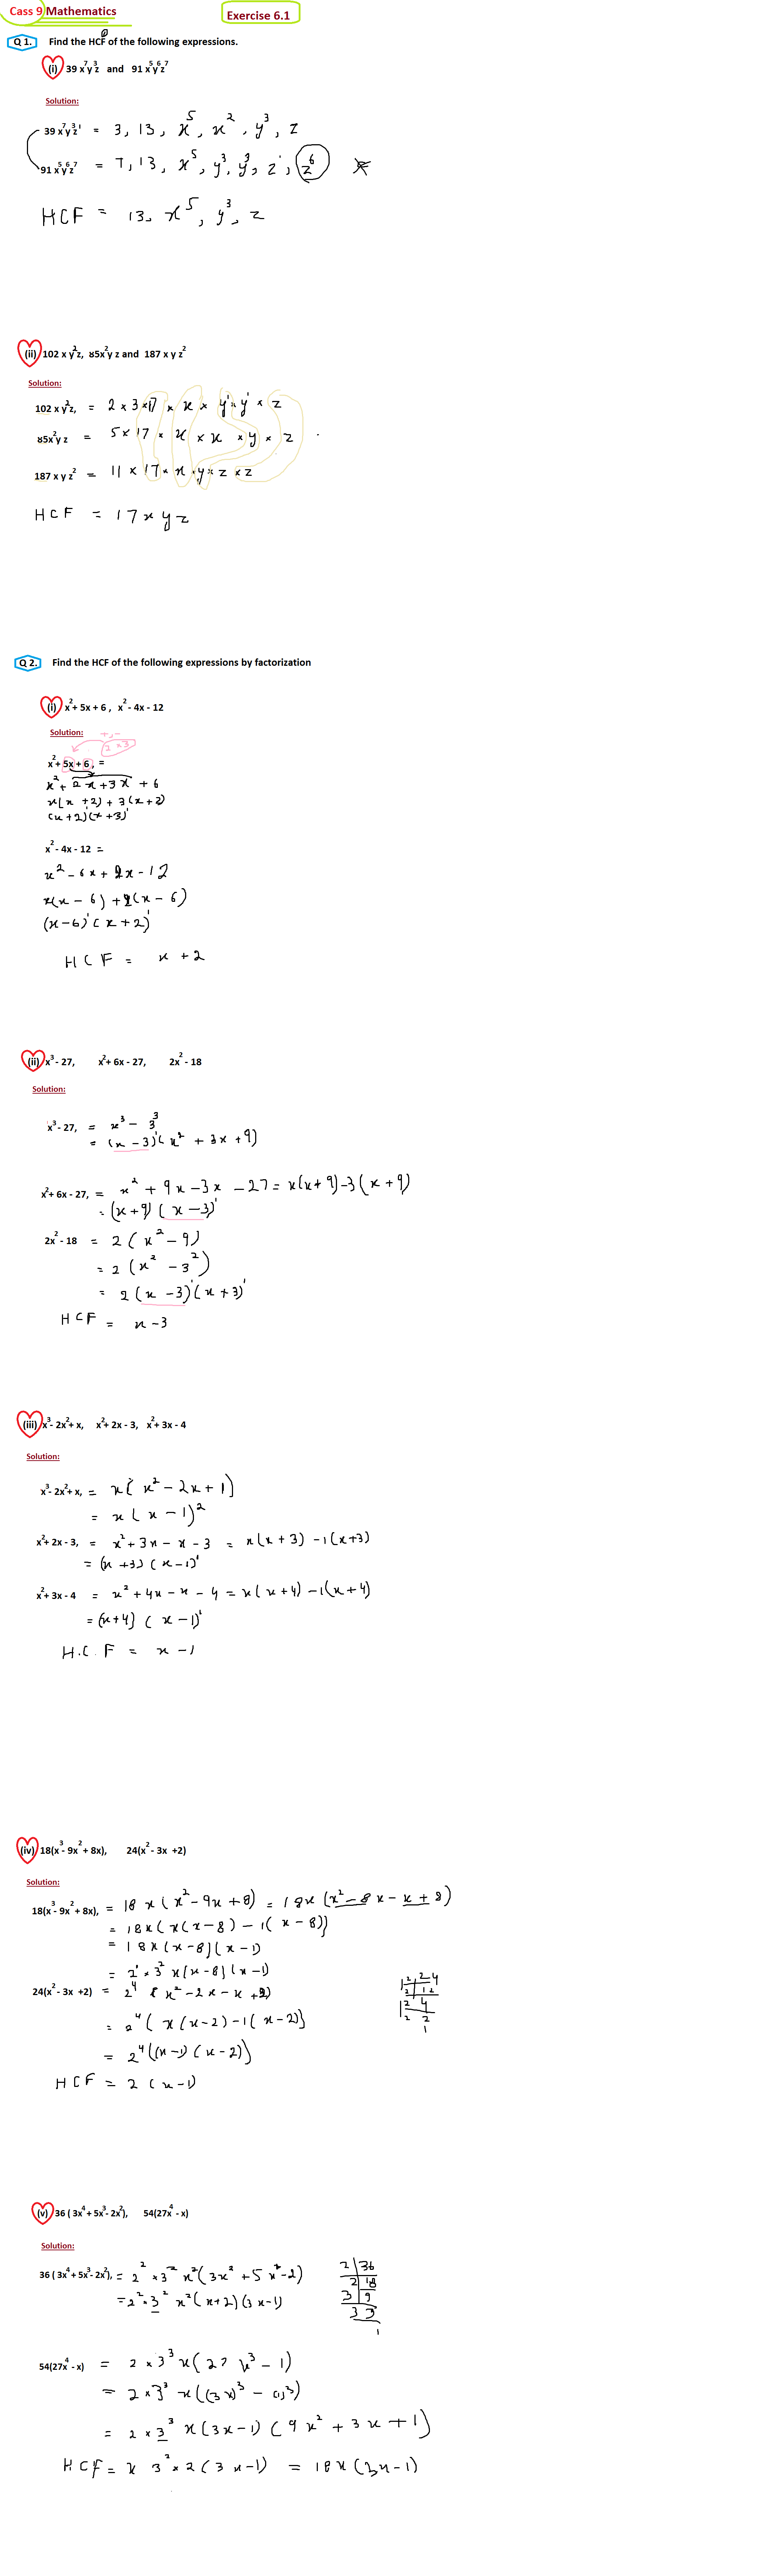 Cass 9 Mathematics
Exercise 6.1
Q 1. Find the HCF of the following expressions.
(i) 39 x⁷y³z and 91 x⁵y⁶z⁷
Solution:
39 x⁷y³z¹ = 3, 13, x⁵, x², y³, z
91 x⁵y⁶z⁷ = 7, 13, x⁵, y³, y³, z¹, z⁶
HCF = 13, x⁵, y³, z
(ii) 102 x y²z, 85x²y z and 187 x y z²
Solution:
102 x y²z, = 2 × 3 × 17 × x × y¹ × y¹ × z
85x²y z = 5 × 17 × x × x × y × z
187 x y z² = 11 × 17 × x × y × z × z
HCF = 17 x y z
Q 2. Find the HCF of the following expressions by factorization
(i) x² + 5x + 6 , x² - 4x - 12
Solution:
+, -
2 × 3
x² + 5x + 6 , =
x² + 2x + 3x + 6
x(x + 2) + 3(x + 2)
(x + 2)(x + 3)
x² - 4x - 12 =
x² - 6x + 2x - 12
x(x - 6) + 2(x - 6)
(x - 6)(x + 2)
HCF = x + 2
(ii) x³ - 27, x² + 6x - 27, 2x² - 18
Solution:
x³ - 27, = x³ - 3³
= (x - 3)(x² + 3x + 9)
x² + 6x - 27, = x² + 9x - 3x - 27 = x(x + 9) - 3(x + 9)
= (x + 9)(x - 3)
2x² - 18 = 2(x² - 9)
= 2(x² - 3²)
= 2(x - 3)(x + 3)
HCF = x - 3
(iii) x³ - 2x² + x, x² + 2x - 3, x² + 3x - 4
Solution:
x³ - 2x² + x, = x(x² - 2x + 1)
= x(x - 1)²
x² + 2x - 3, = x² + 3x - x - 3 = x(x + 3) - 1(x + 3)
= (x + 3)(x - 1)
x² + 3x - 4 = x² + 4x - x - 4 = x(x + 4) - 1(x + 4)
= (x + 4)(x - 1)
H.C.F = x - 1
(iv) 18(x³ - 9x² + 8x), 24(x² - 3x +2)
Solution:
18(x³ - 9x² + 8x), = 18 x(x² - 9x + 8) = 18x(x² - 8x - x + 8)
= 18x(x(x - 8) - 1(x - 8))
= 18x(x - 8)(x - 1)
= 2¹ × 3² x(x - 8)(x - 1)
24(x² - 3x +2) = 2⁴ (x² - 2x - x + 2)
= 2⁴(x(x - 2) - 1(x - 2))
= 2⁴((x - 1)(x - 2))
HCF = 2(x - 1)
(v) 36 ( 3x⁴ + 5x³ - 2x²), 54(27x⁴ - x)
Solution:
36 ( 3x⁴ + 5x³ - 2x²), = 2² × 3² x²(3x² + 5x - 2)
= 2² × 3² x²(x + 2)(3x - 1)
2 36
2 18
3 9
3 3
1
54(27x⁴ - x) = 2 × 3³ x(27x³ - 1)
= 2 × 3³ x((3x)³ - (1)³)
= 2 × 3³ x(3x - 1)(9x² + 3x + 1)
HCF = x 3² × 2(3x - 1) = 18x(3x - 1)